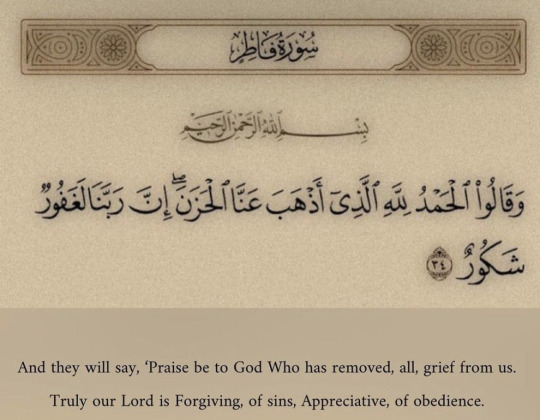 سُورَةُ فَاطِرٍ
بِسْمِ اللَّهِ الرَّحْمَٰنِ الرَّحِيمِ
وَقَالُوا۟ ٱلْحَمْدُ لِلَّهِ ٱلَّذِىٓ أَذْهَبَ عَنَّا ٱلْحَزَنَ ۖ إِنَّ رَبَّنَا لَغَفُورٌۭ
شَكُورٌ ٣٤
And they will say, ‘Praise be to God Who has removed, all, grief from us.
Truly our Lord is Forgiving, of sins, Appreciative, of obedience.